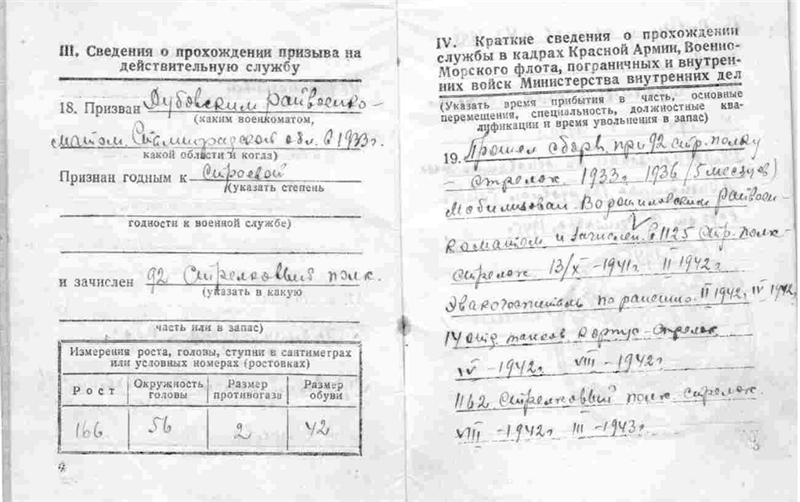 III. Сведения о прохождении призыва на
действительную службу
18. Призван Дубовским райвоенко-
(каким военкоматом,
матом Сталинградской обл. в 1933г.
какой области и когда)
Признан годным к строевой
(указать степень
годности к военной службе)
и зачислен 92 Стрелковый полк.
(указать в какую
часть или в запас)
Измерения роста, головы, ступни в сантиметрах
или условных номерах (ростовках)
Рост Окружность головы Размер противогаза Размер обуви
166 56 2 42
4
IV. Краткие сведения о прохождении
службы в кадрах Красной Армии, Военно-
Морского флота, пограничных и внутрен-
них войск Министерства внутренних дел
(Указать время прибытия в часть, основные
перемещения, специальность, должностные ква-
лификации и время увольнения в запас)
19. Прошел сборы при 92 стр. полку
– стрелок 1933г 1936 (5 месяцев)
Мобилизован Ворошиловским райвоен-
коматом и зачислен в 1125 стр. полк-
стрелок 13/X -1941г II 1942г.
Эвакогоспиталь по ранению II 1942г. IV 1942г.
14 корпус - стрелок
IV -1942г VIII -1942г
1162 стрелковый полк стрелок
VIII -1942г III -1943г.